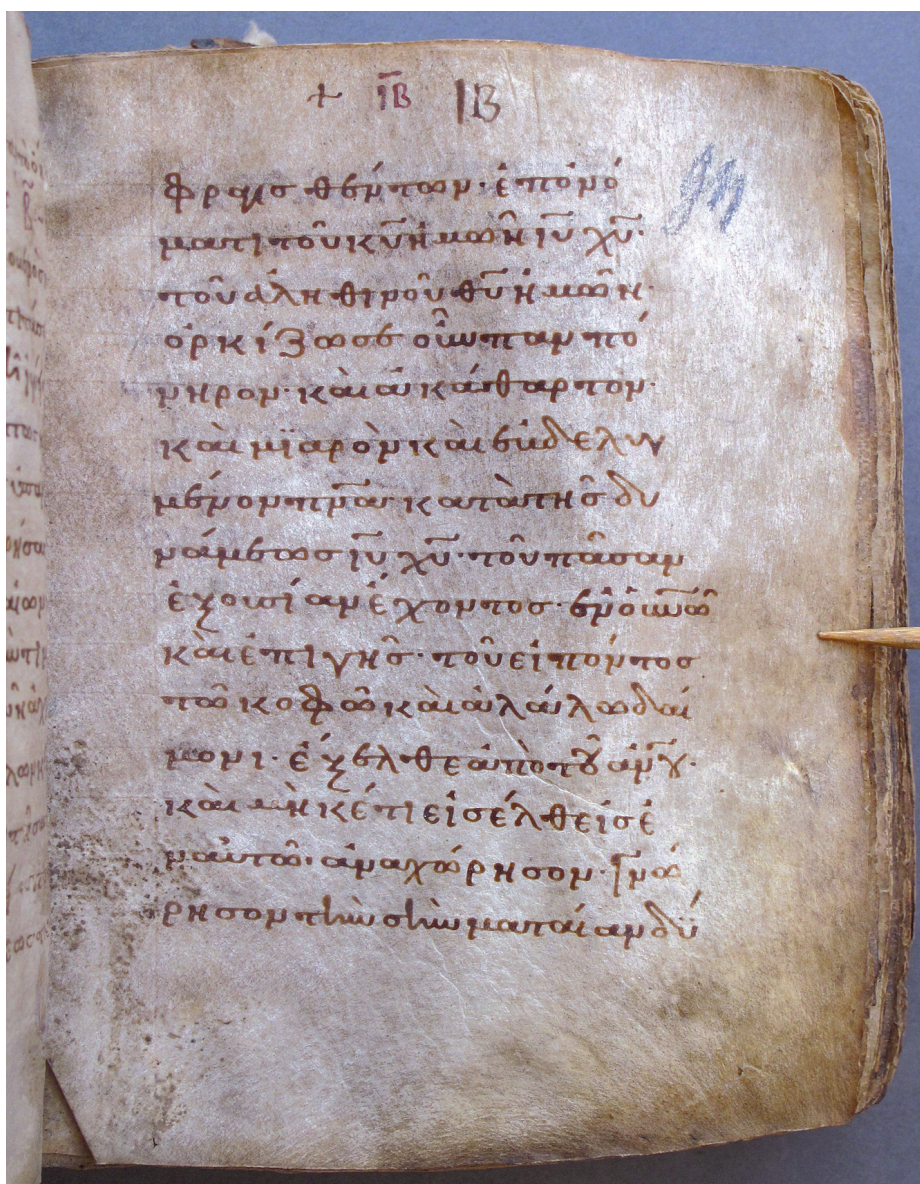 + ΙΒ ΙΒ
φραγισθέντων· ἐπ ὀνό
ματι τοῦ κυ ἡμῶν ιυ χυ·
τοῦ ἀληθινοῦ θυ ἡμῶν·
ὁρκίζω σε οὖν παν πό
νηρον· καὶ ἀκάθαρτον·
καὶ μϊαρὸν καὶ ἐβδελυγ
μένον πνα· κατὰ τῆς δυ
νάμεως ιυ χυ· τοῦ πᾶσαν
ἐξουσίαν ἔχοντος· ἐν οὐνῶ
καὶ ἐπι γῆς· τοῦ εἰπόντος
τῶ κοφῶ καὶ ἀλάλω δαί
μονι· ἔξελθε ἀπὸ τοῦ ανου·
καὶ μὴκέτι εἰσέλθεις ἐ
ν αὐτῶ· ἀναχώρησον· γνώ
ρησον τὴν σὴν ματαίαν δύ